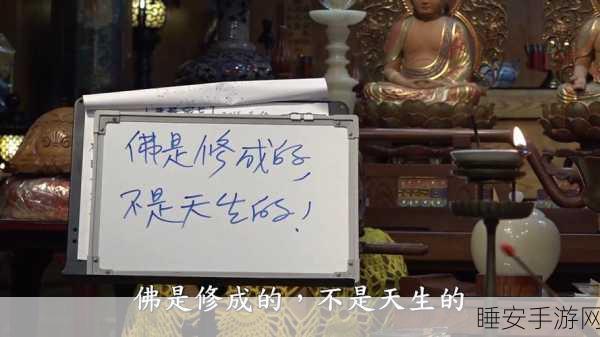 佛是修成的,
不是天生的!
佛是修成的，不是天生的
睡安手游网